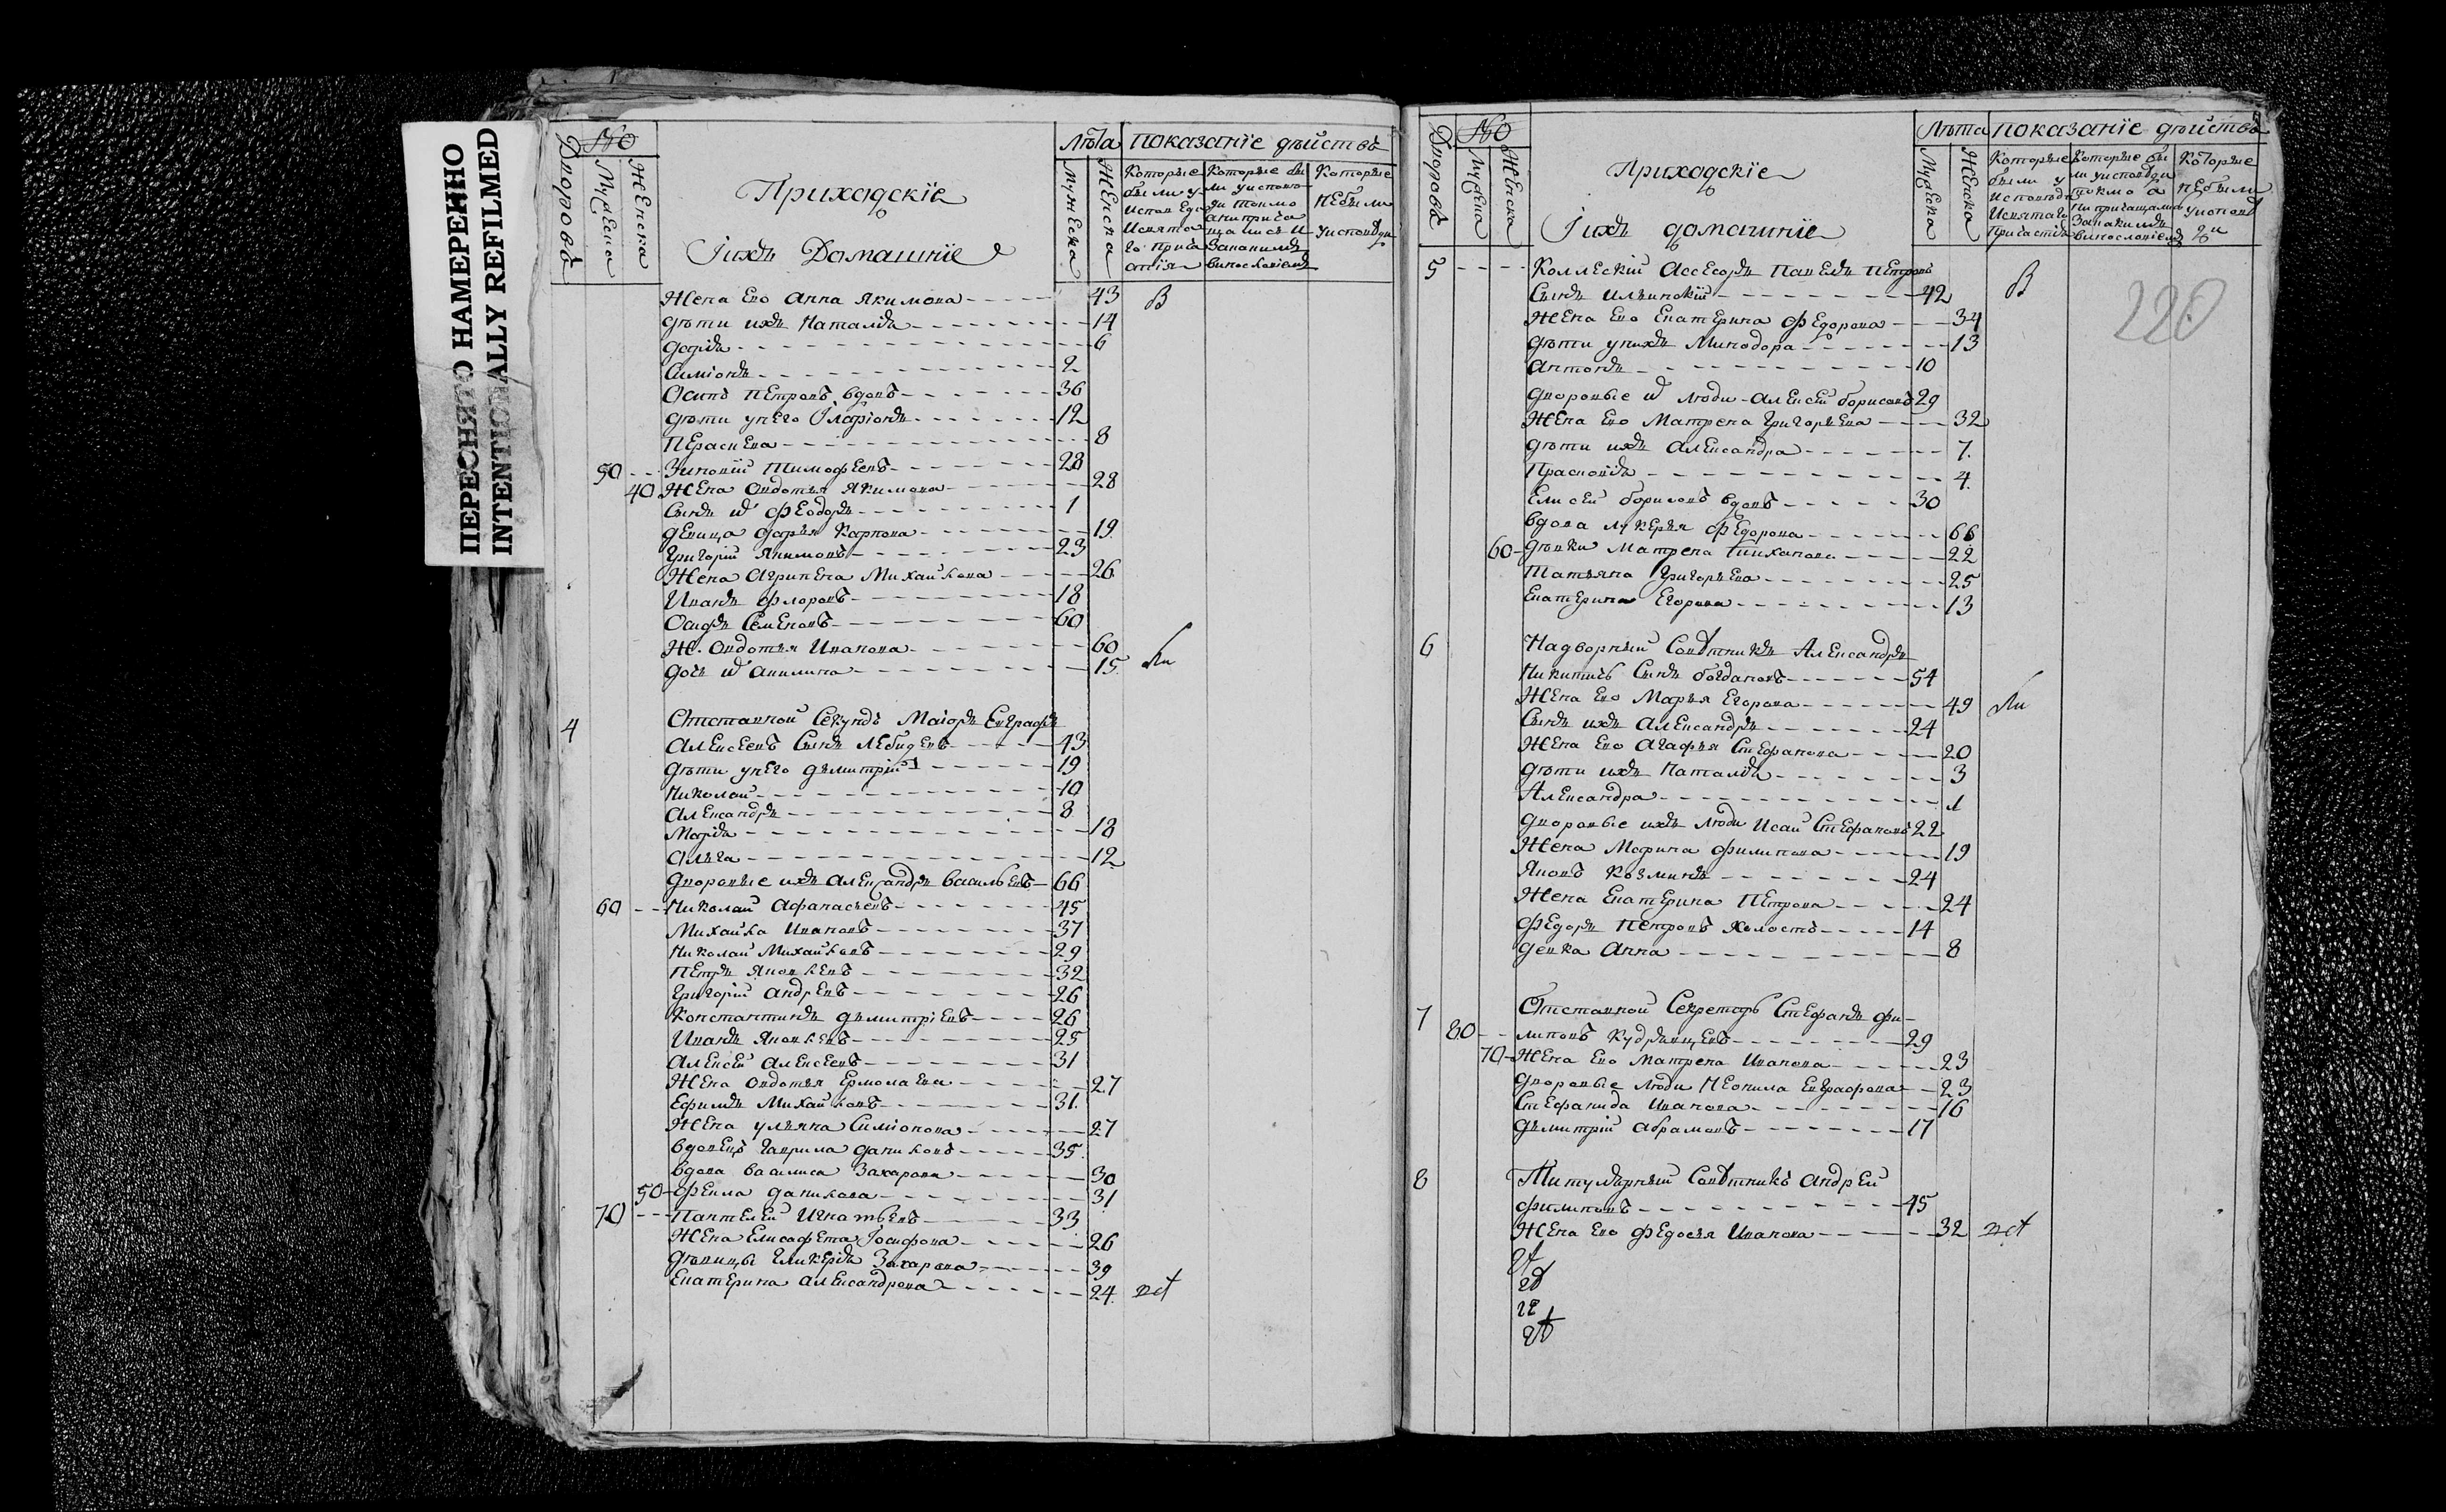 ПЕРЕСНЯТО НАМЕРЕННО
INTENTIONALLY REFILMED
№
Дворовъ
Мужеска
Женска
Приходскїе
Їихъ Домашнїе
Лѣта
Мужеска
Женска
показанїе дѣйствъ
Которые были у
Которые бы
Которые
небыли
Жена ево Анна Якимова 43 В
дѣти ихъ Наталїя 14
дарїя 6
Симїонъ 2
Осипъ Петровъ вдовъ 36
дѣти унего Їларїонъ 12
Парасkева 8
50 Зиновїй Тимофеевъ 28
40 Жена Овдотья Якимова 28
Сынъ ихъ Феодоръ 1
девица дарья Карпова 19
Григорїй Якимовъ 23
Жена Агрипена Михайлова 26
Иванъ Флоровъ 18
Осифъ Семеновъ 60
Ж. Овдотья Иванова 60
дочь их Акилина 15 Ли
4 Отставной Секундъ Маїоръ Евграфъ
Алексеевъ Сынъ Лебидевъ 43
дѣти унего дьмитрїй 19
Николай 10
Александръ 8
Марїя 18
Ольга 12
дворовые ихъ Александръ Васильевъ 66
60 Николай Афанасьевъ 45
Михайла Ивановъ 37
Николай Михайловъ 29
Петръ Яковлевъ 32
Григорїй Андревъ 26
Константинъ дьмитрїевъ 26
Иванъ Яковлевъ 25
Алексей Алексеевъ 31
Жена Овдотья Ермолаева 27
Ефимъ Михайловъ 31
Жена ульяна Симїонова 27
Вдовецъ Гаврила даниловъ 35
Вдова Василиса Захарова 30
50 Фекла данилова 31
70 Пантелей Игнатьевъ 33
Жена Елисафета Їосифова 26
дѣвицы Гликерїя Захарова 39
Екатерина Александрова 24
№
Дворовъ
Мужеска
Женска
Приходскїе
Їихъ домашнїе
Лѣта
Мужеска
Женска
показанїе дѣйствъ
Которые
Которые бы
Которые
небыли
220
5 Коллескїй Ассесоръ Павелъ Петровъ
Сынъ Ильинскїй 42 В
Жена ево Екатерина Федорова 34
дѣти унихъ Минодора 13
Антонъ 10
дворовые их люди Алексей борисовъ 29
Жена ево Матрена Григорьева 32
дѣти ихъ Александра 7
Прасковїя 4
Елисей борисовъ вдовъ 30
Вдова лукерья Федорова 66
60 дѣвки Матрена Тиханова 22
Татьяна Григорьева 25
Екатерина Егорова 13
6 Надворный Совѣтникъ Александръ
Никитичь Сынъ богдановъ 54
Жена ево Марья Егорова 49 Ли
Сынъ ихъ Александръ 24
Жена ево Агафья Стефанова 20
дѣти ихъ Наталїя 3
Александра 1
дворовые ихъ люди Исай Стефановъ 22
Жена Марина Филипова 19
Яковъ Козминъ 24
Жена Екатерина Петрова 24
Федоръ Петровъ холостъ 14
девка Анна 8
7 Отставной Секретарь Стефанъ Фи-
80 липовъ Кудрявцевъ 29
70 Жена ево Матрена Иванова 23
дворовые люди Неонила Евграфова 23
Стефанида Иванова 16
дьмитрїй Абрамовъ 17
8 Титулярный Совѣтникъ Андрей
Филиповъ 45
Жена ево Федосья Иванова 32